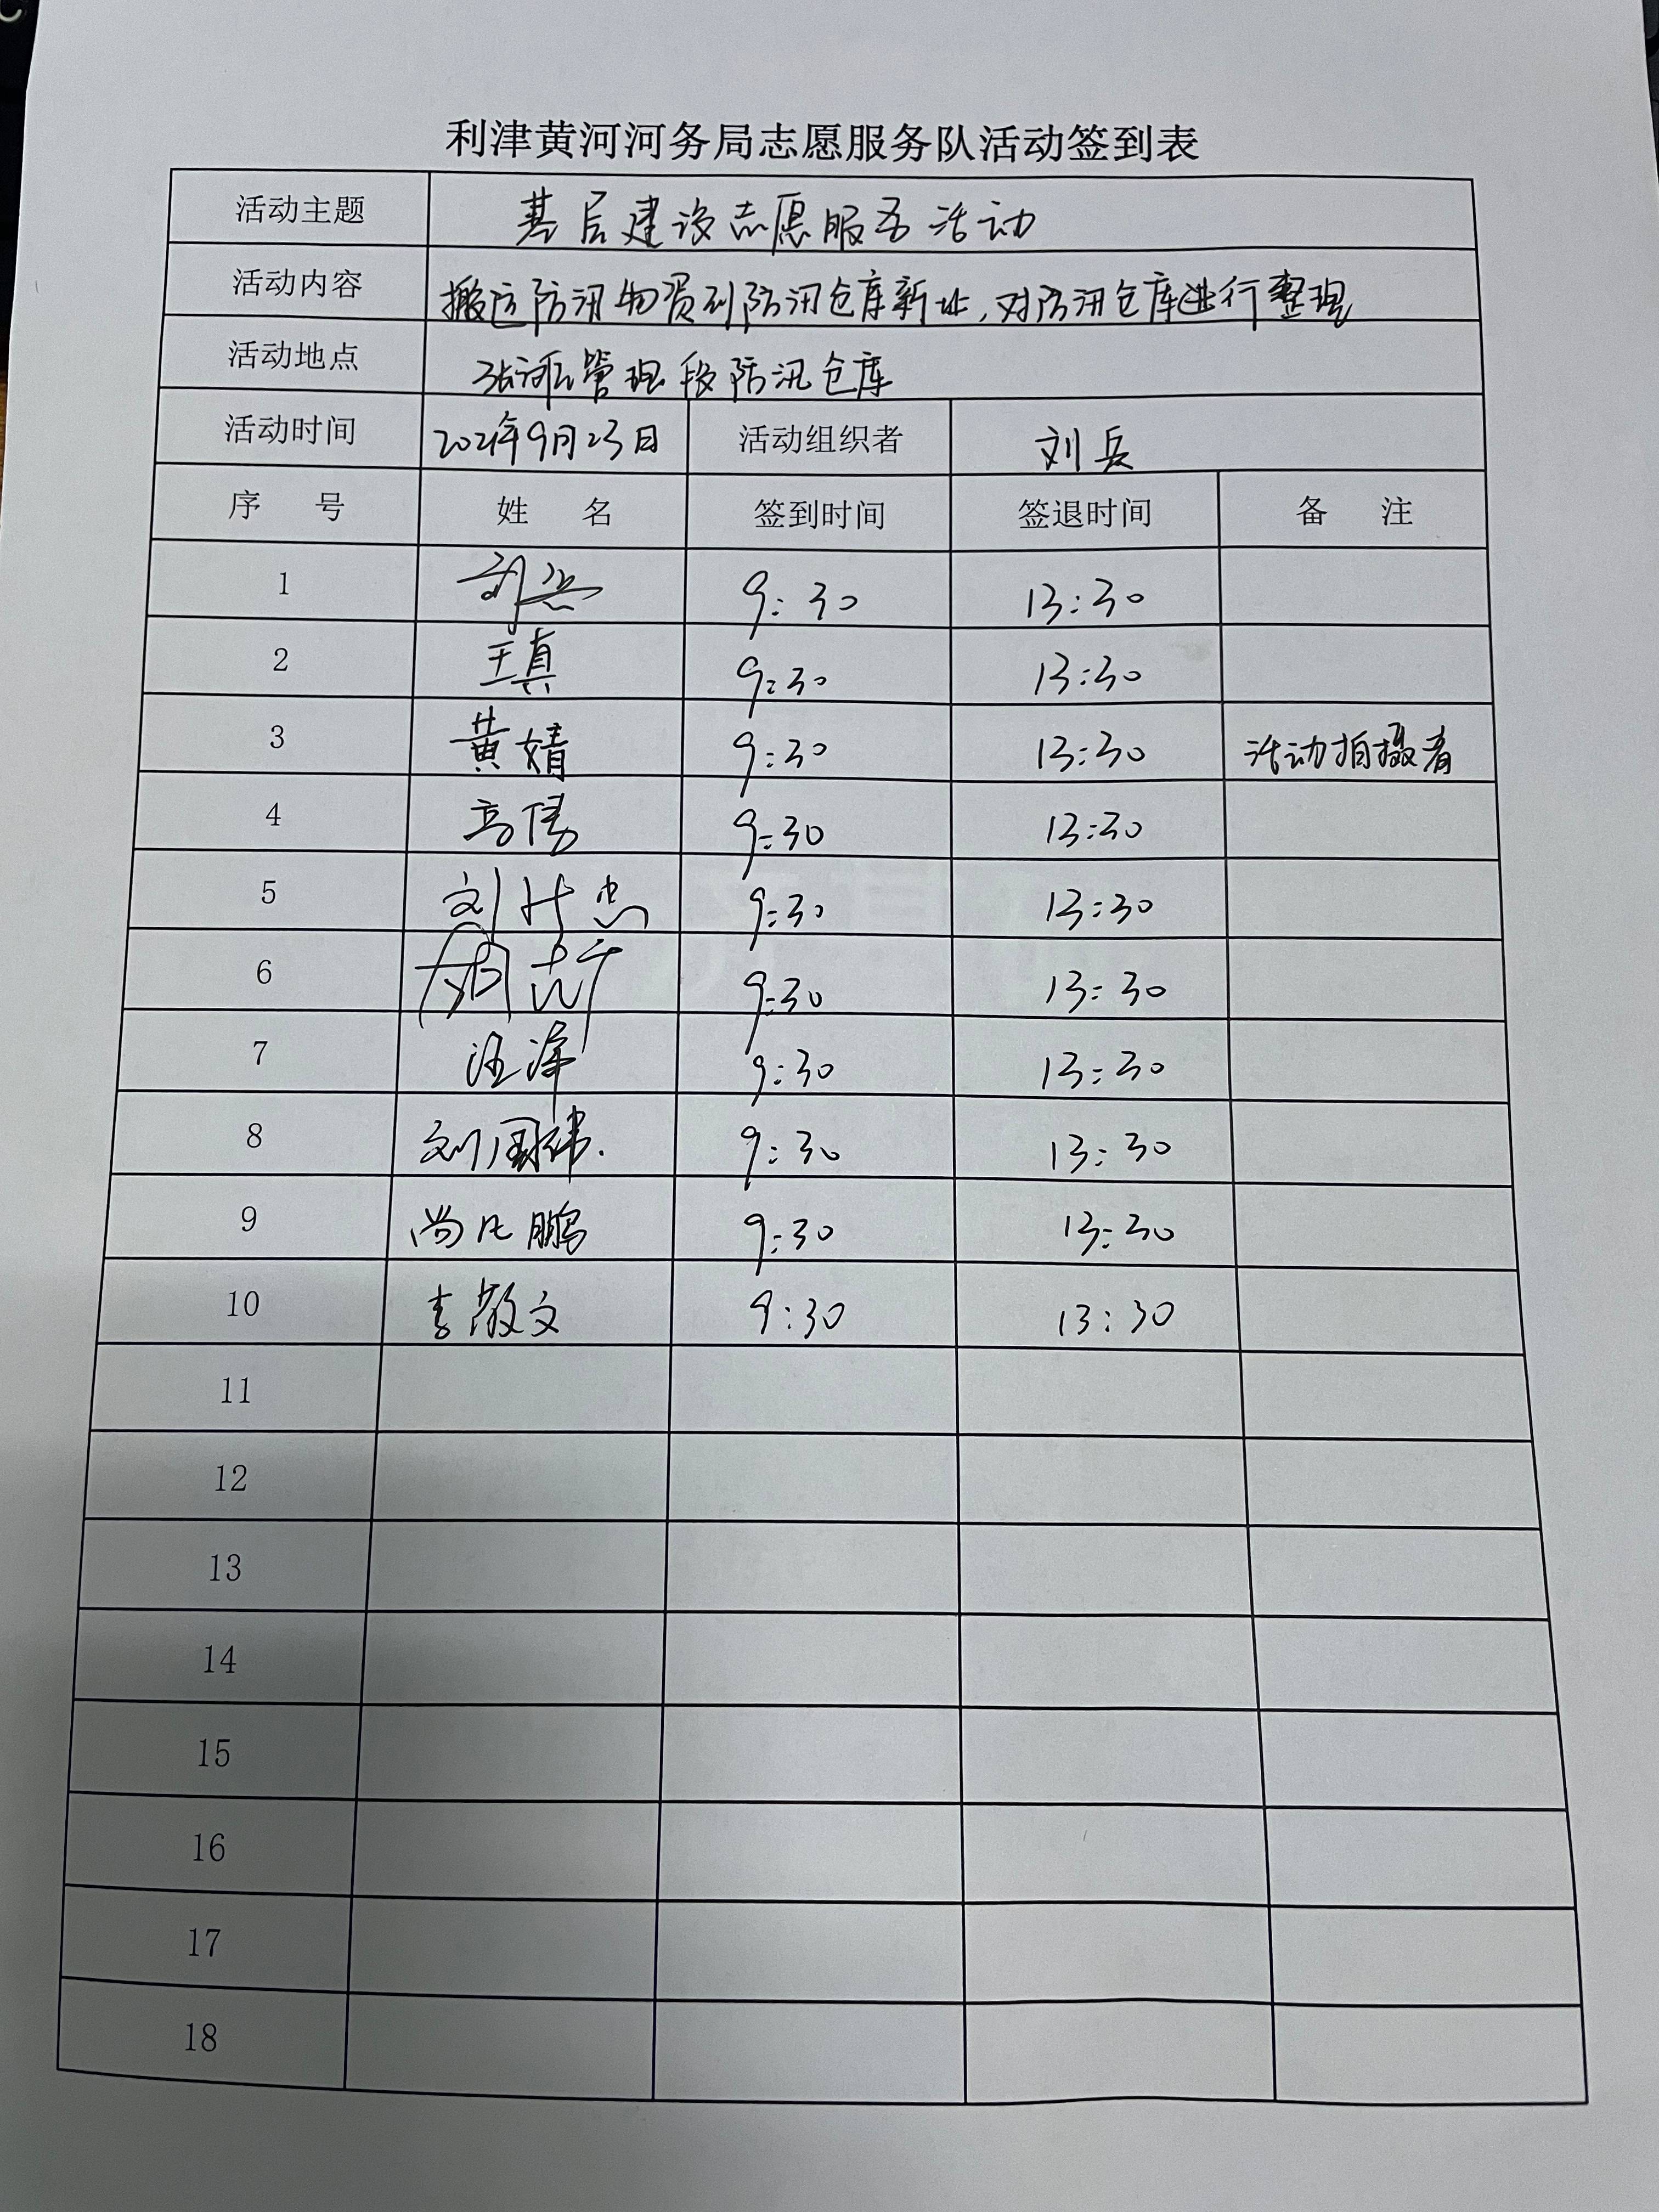 利津黄河河务局志愿服务队活动签到表
活动主题 基层建设志愿服务活动
活动内容 搬运防汛物资到防汛仓库新址,对防汛仓库进行整理
活动地点 管理段防汛仓库
活动时间 2021年9月23日 活动组织者 刘兵
序 号 姓 名 签到时间 签退时间 备 注
1 9:30 13:30
2 王真 9:30 13:30
3 黄婧 9:30 13:30 活动拍摄者
4 高倩 9:30 13:30
5 刘 9:30 13:30
6 9:30 13:30
7 汪洋 9:30 13:30
8 刘国伟 9:30 13:30
9 尚凡鹏 9:30 13:30
10 李敬文 9:30 13:30
11
12
13
14
15
16
17
18